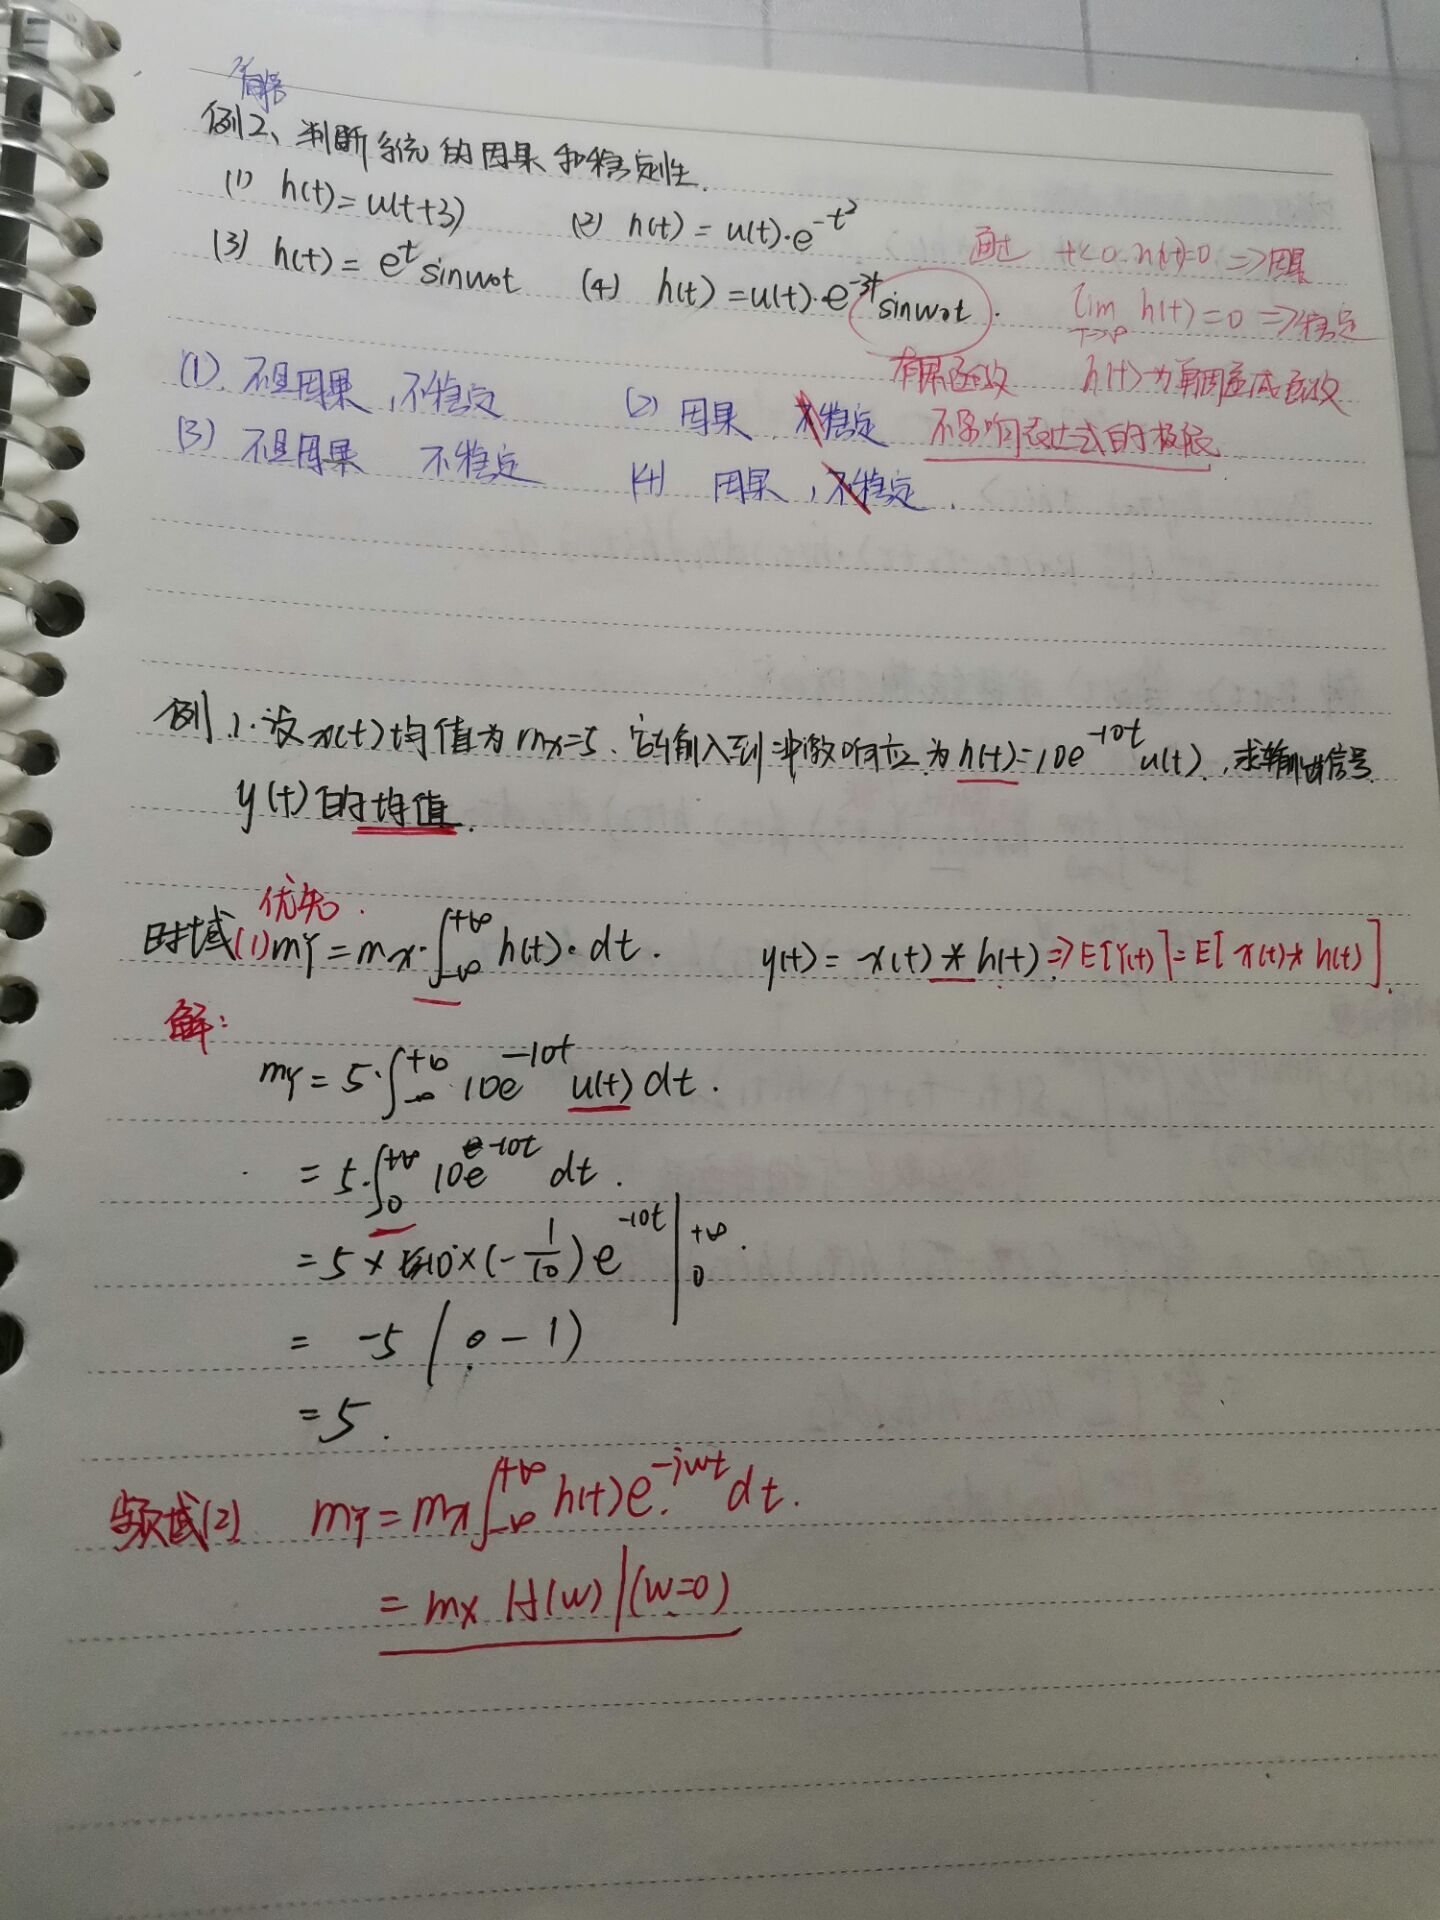 有界
例2、判断系统的因果和稳定性.
(1) h(t)=u(t+3) (2) h(t)=u(t)·e^{-t²}
通过 t<0 h(t)=0 ⇒因果
(3) h(t)=e^t sinw₀t (4) h(t)=u(t)·e^{-3t} sinw₀t.
lim_{T→∞} h(t)=0 ⇒稳定
有界函数 h(t)为单调递减函数
(1). 不是因果, 不稳定 (2) 因果. 不稳定 不影响表达式的极限
(3) 不是因果 不稳定 (4) 因果, 不稳定.
例1. 设x(t)均值为mx=5、它输入到冲激响应为h(t)=10e^{-10t}u(t), 求输出信号
y(t)的均值.
优先.
时域(1) mY=mx·∫_{-∞}^{+∞} h(t)·dt. y(t)=x(t)*h(t)⇒E[Y(t)]=E[x(t)*h(t)].
解:
mY=5·∫_{-∞}^{+∞} 10e^{-10t}u(t)dt.
=5·∫_0^{+∞} 10e^{-10t} dt.
=5×10×(-1/10)e^{-10t}|_0^{+∞}.
= -5(0-1)
=5.
频域(2) mY=mx∫_{-∞}^{+∞} h(t)e^{-jwt}dt.
=mx H(w)|(w=0)